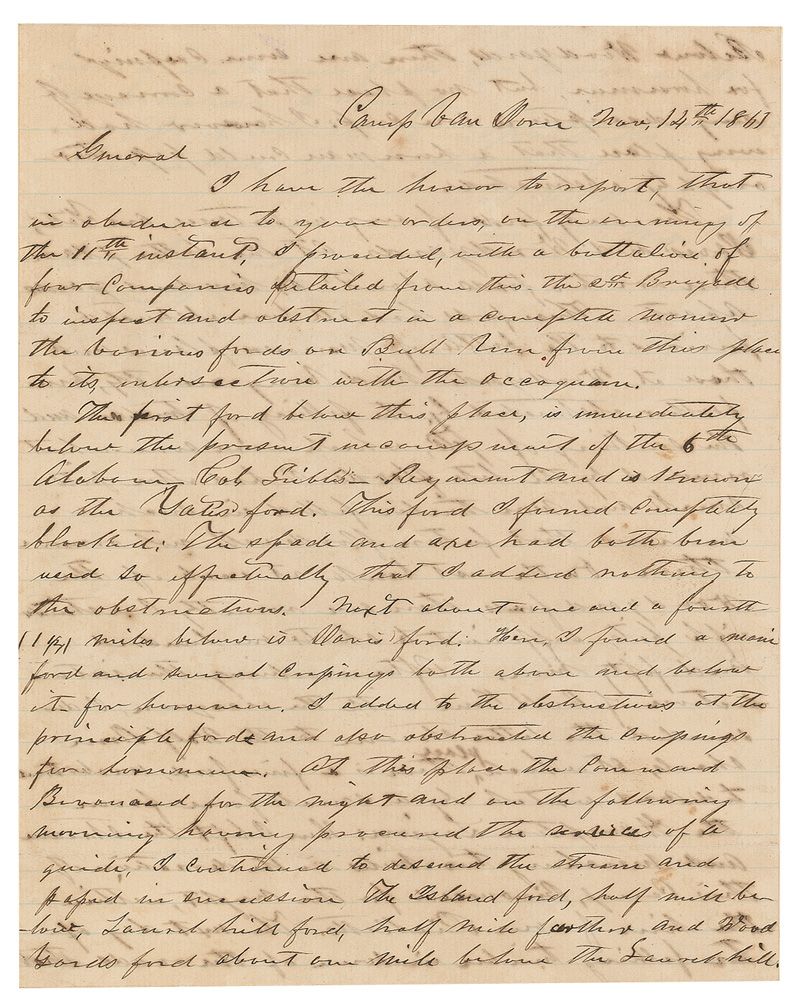 Camp Van Dorn Nov, 14th 1861
General
I have the honor to report, that
in obedience to your orders, on the evening of
the 11th instant, I proceeded, with a battalion of
four Companies detailed from this the Brigade
to inspect and obstruct in a complete manner
the various fords on Bull Run from this place
to its intersection with the Occoquan.
The first ford below this place, is immediately
below the present encampment of the 6th
Alabama Regiment and is known
as the Yates ford. This ford I found completely
blocked: The spade and axe had both been
used so effectually that I added nothing to
the obstructions. Next about one and a fourth
(1 1/4) miles below is Davis' ford: Here, I found a main
ford and several crossings both above and below
it for horsemen. I added to the obstructions at the
principle ford and also obstructed the crossings
for horsemen. At this place the Command
Bivouaced for the night and on the following
morning having procured the services of a
guide, I continued to descend the stream and
passed in succession The Island ford, half mile be-
-low, Laurel hill ford, half mile further and Wood
Yards ford about one mile below the Laurel hill.